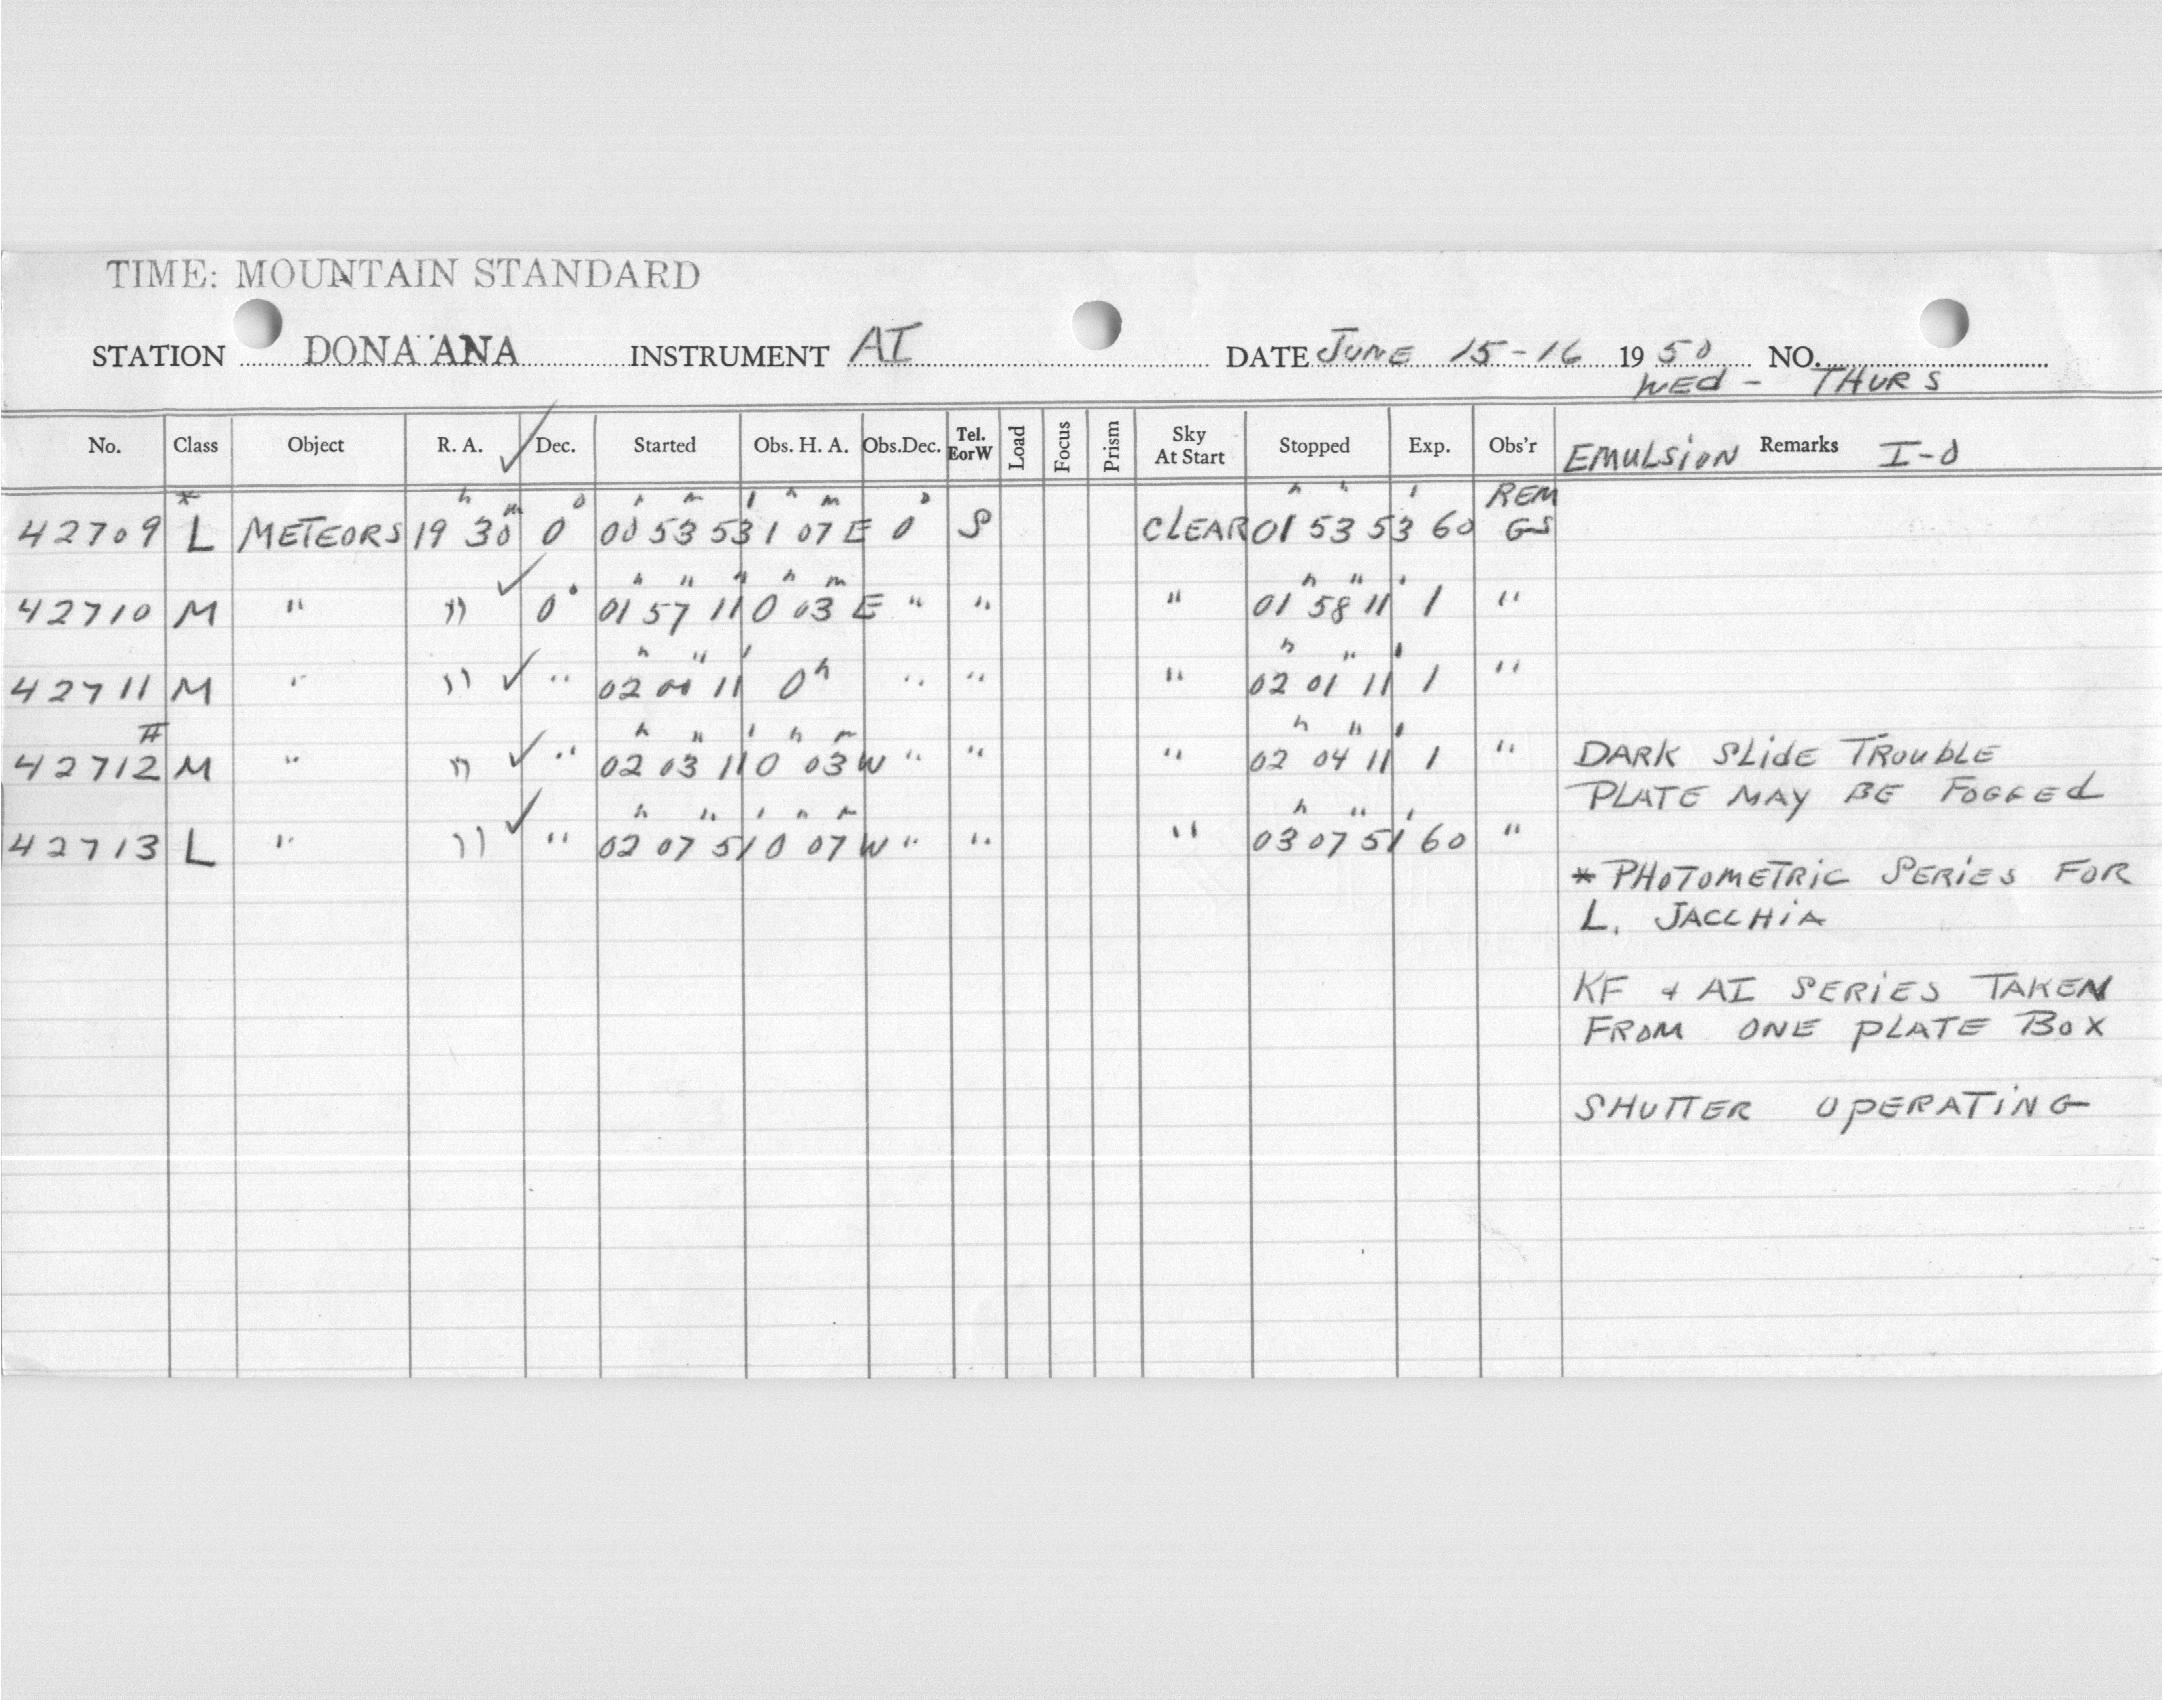 TIME: MOUNTAIN STANDARD
STATION DONA ANA INSTRUMENT AI DATE JUNE 15-16 1950 NO.
WED - THURS
No. Class Object R. A. Dec. Started Obs. H. A. Obs.Dec. Tel. EorW Load Focus Prism Sky At Start Stopped Exp. Obs'r EMULSION Remarks I-O
42709 L* METEORS 19h 30m 0° 00h 53m 53' 1h 07m E 0° S CLEAR 01h 53" 53' 60 REM GS
42710 M " " ✓ 0° 01h 57" 11" 0h 03m E " " " 01h 58" 11' 1 "
42711 M " " ✓ " 02h 00" 11' 0h " " " 02h 01" 11' 1 "
42712# M " " ✓ " 02h 03" 11' 0h 03m W " " " 02h 04" 11' 1 " DARK SLIDE TROUBLE
PLATE MAY BE FOGGED
42713 L " " ✓ " 02h 07" 51' 0h 07m W " " " 03h 07" 51' 60 "
* PHOTOMETRIC SERIES FOR
L. JACCHIA
KF + AI SERIES TAKEN
FROM ONE PLATE BOX
SHUTTER OPERATING